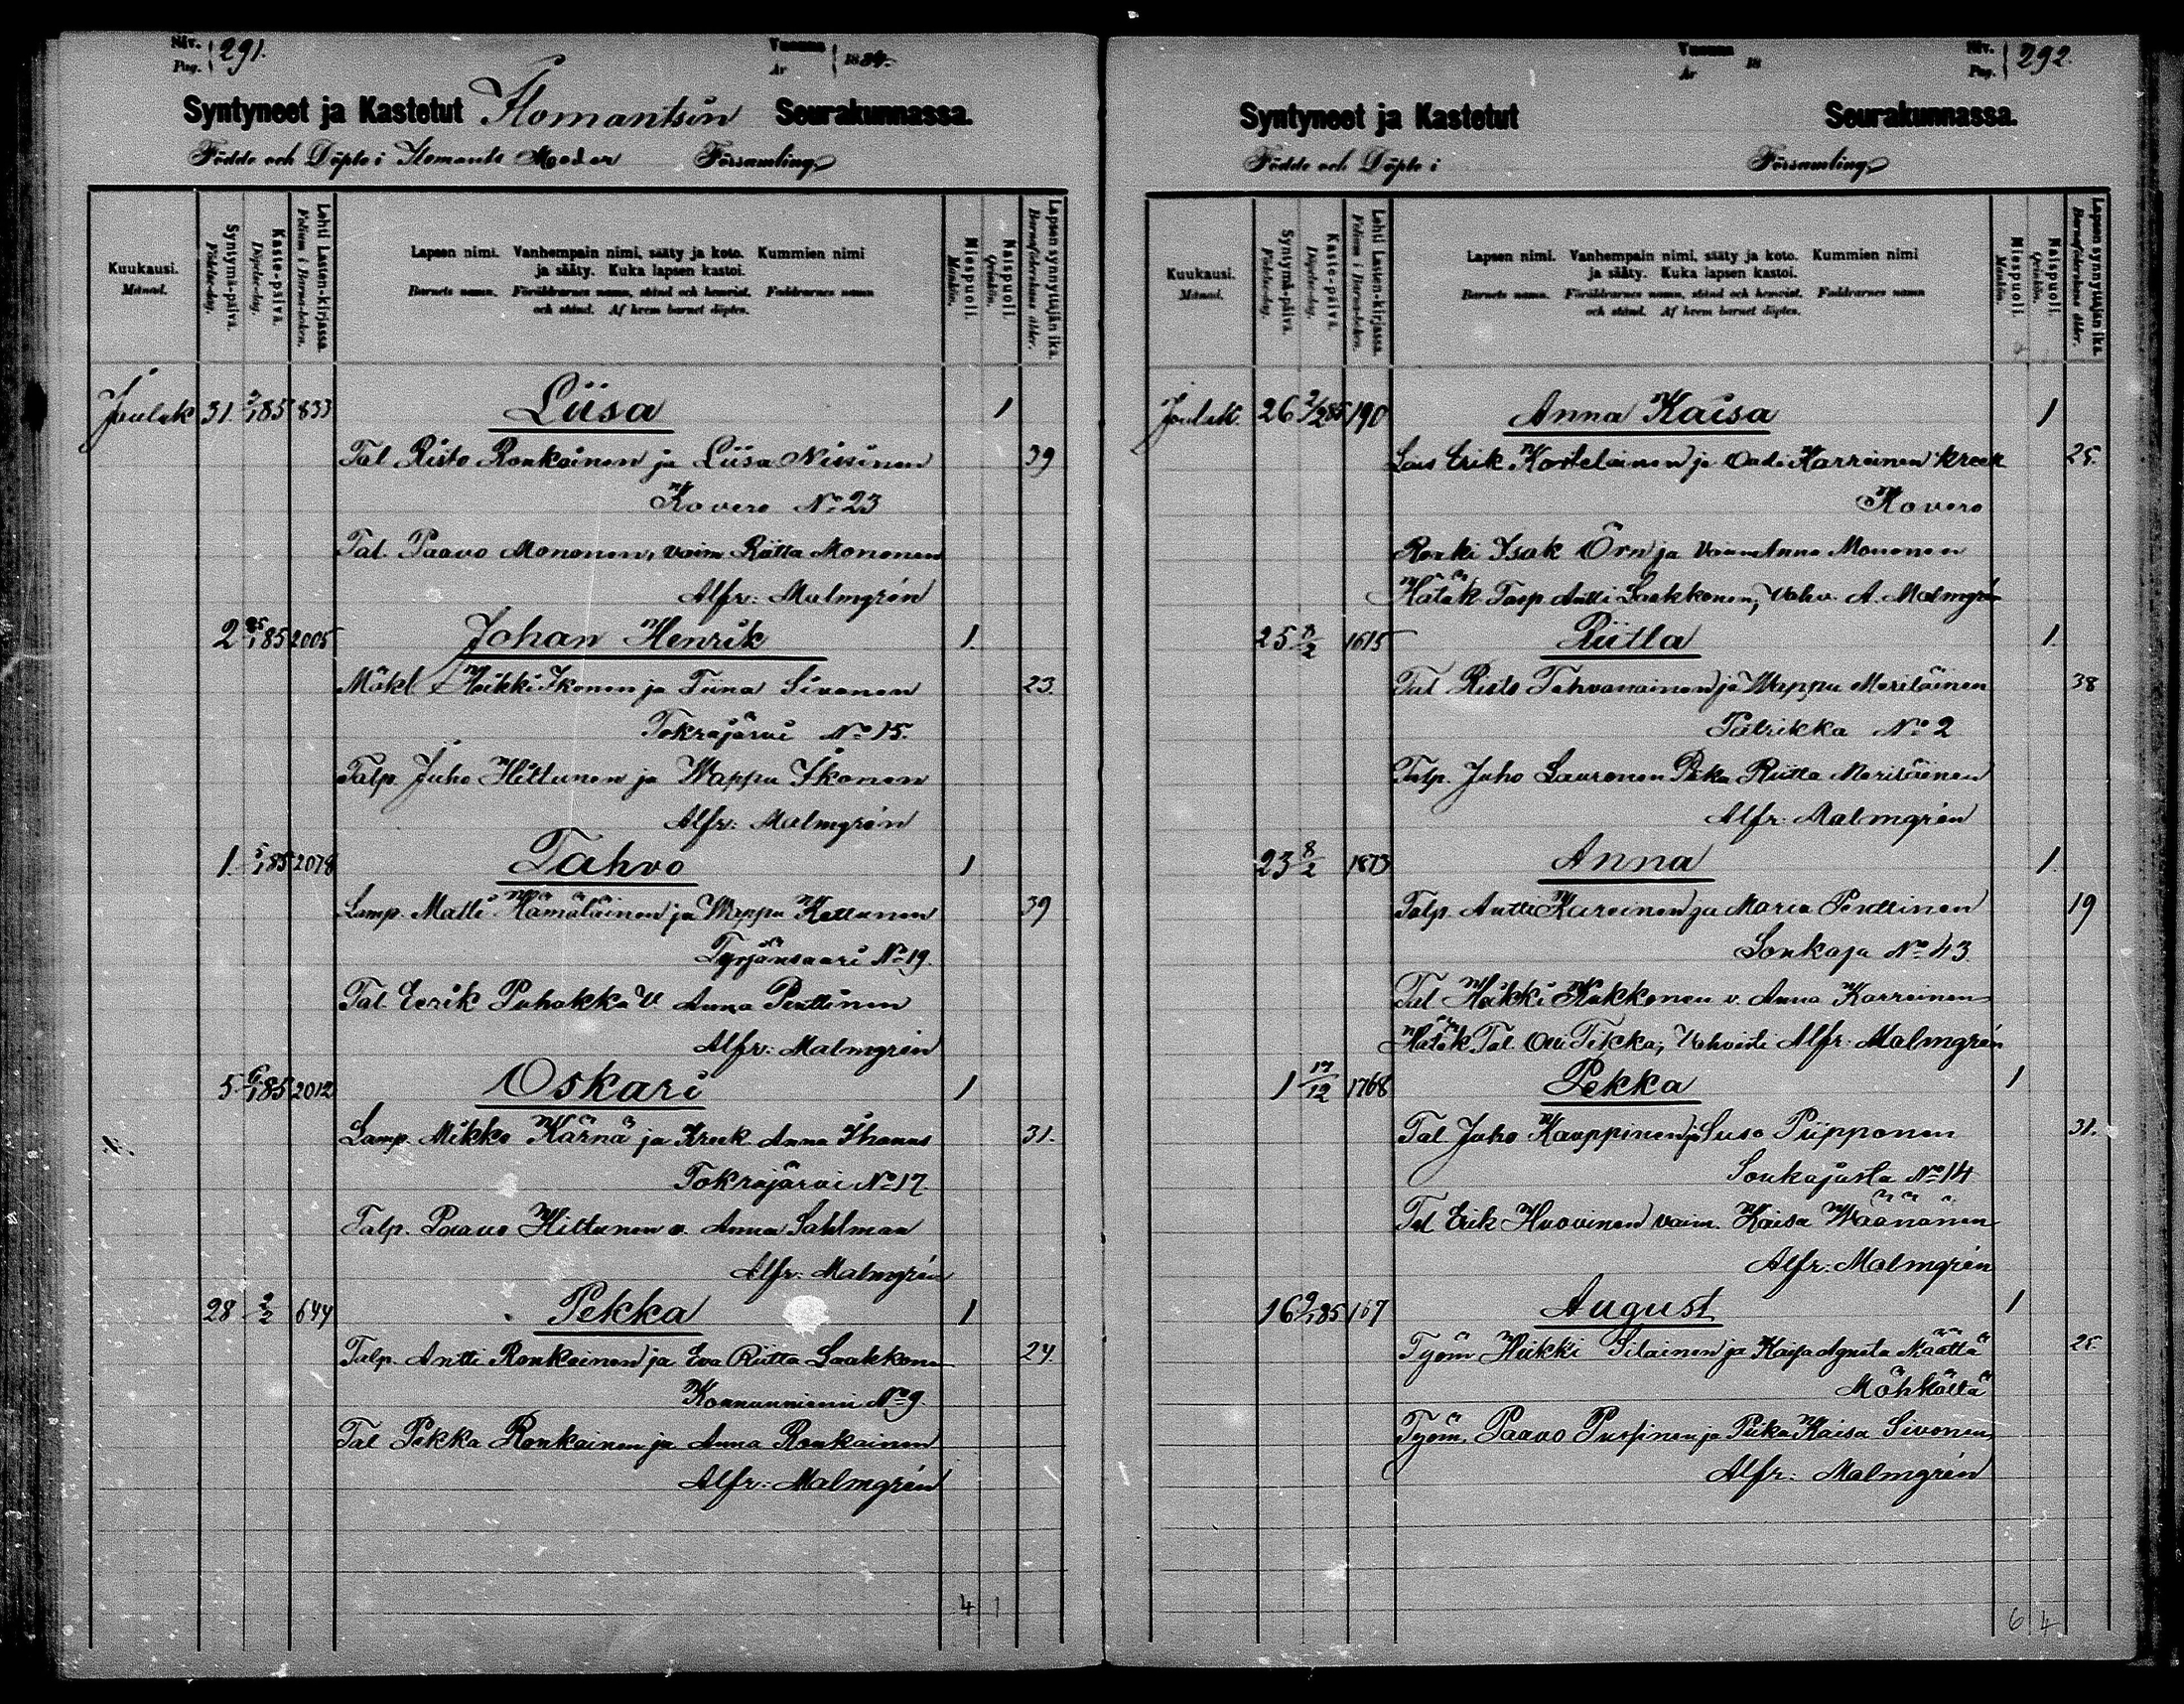 Siv. Pag. 291.
Vuonna År 1884.
Syntyneet ja Kastetut Ilomantsin Seurakunnassa.
Födde och Döpte i Ilomants Moder Församling
Kuukausi. Månad.
Syntymä-päivä. Födelse-dag.
Kaste-päivä. Döpelse-dag.
Lehti Lasten-kirjassa. Folium i Barna-boken.
Lapsen nimi. Vanhempain nimi, sääty ja koto. Kummien nimi
ja sääty. Kuka lapsen kastoi.
Barnets namn. Föräldrarnes namn, stånd och hemvist. Faddrarnes namn
och stånd. Af hvem barnet döptes.
Miespuoli. Mankön.
Naispuoli. Qvinkön.
Lapsen synnyttäjän ikä. Barnaföderskans ålder.
Jouluk 31. 85 833 Liisa 1
Tal Risto Ronkainen ja Liisa Nissinen 39
Kovero No 23
Tal. Paavo Mononen, vaim Riitta Mononen
Alfr: Malmgrén
2 85 2005 Johan Henrik 1.
Mäkl Heikki Ikonen ja Tiina Sivonen 23.
Tokrajärvi No 15.
Talp. Juho Hiltunen ja Wappu Ikonen
Alfr: Malmgrén
1. 5/1 85 2078 Tahvo 1
Lamp. Matti Hämäläinen ja Wappu Kettunen 39
Tyrjänsaari No 19.
Tal. Eerik Puhakka v. Anna Penttinen
Alfr: Malmgrén
5. 6/1 85 2012 Oskari 1
Lamp. Mikko Kärnä ja Kreek. Anna Ihanus 31.
Tokrajärvi No 17.
Talp. Paavo Hiltunen v. Anna Sahlman
Alfr: Malmgrén
28 2/2 644 Pekka 1
Talp. Antti Ronkainen ja Eva Riitta Laakkonen 24.
Konnunniemi No 9.
Tal Pekka Ronkainen ja Anna Ronkainen
Alfr: Malmgrén
4 1
Vuonna År 18
Siv. Pag. 292.
Syntyneet ja Kastetut Seurakunnassa.
Födde och Döpte i Församling
Kuukausi. Månad.
Syntymä-päivä. Födelse-dag.
Kaste-päivä. Döpelse-dag.
Lehti Lasten-kirjassa. Folium i Barna-boken.
Lapsen nimi. Vanhempain nimi, sääty ja koto. Kummien nimi
ja sääty. Kuka lapsen kastoi.
Barnets namn. Föräldrarnes namn, stånd och hemvist. Faddrarnes namn
och stånd. Af hvem barnet döptes.
Miespuoli. Mankön.
Naispuoli. Qvinkön.
Lapsen synnyttäjän ikä. Barnaföderskans ålder.
Jouluk. 26 2/2 85 190 Anna Kaisa 1
Lois Erik Kortelainen ja Karreinen kreek 25.
Kovero
Renki Isak Örn ja Vaimo Anna Mononen
Hätäk Talp. Antti Laakkonen, Vahv. A. Malmgrén
25 8/2 1615 Riitta 1.
Tal Risto Tahvanainen ja Wappu Meriläinen 38
Patrikka No 2
Talp. Juho Lauronen Piika Riitta Meriläinen
Alfr: Malmgrén
23 8/2 1873 Anna 1.
Talp. Antti Kareinen ja Maria Penttinen 19
Sonkaja No 43.
Tal Heikki Hakkonen v. Anna Karreinen
Hätäk. Tal. Olli Tikka, Vahvisti Alfr: Malmgrén
1 17/12 1768 Pekka 1
Tal Juho Kauppinen ja Susa Piipponen 31.
Sonkajasta No 14
Tal Erik Huovinen vaim. Kaisa Wäänänen
Alfr: Malmgrén
16 85 167 August 1
Työm Heikki Silainen ja Kaisa Agneta Määttä 25.
Möhköltä
Työm. Paavo Pussinen ja Piika Kaisa Sivonen
Alfr: Malmgrén
6 4